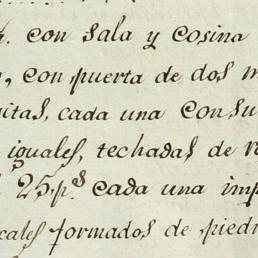 con sala y cosina
con puerta de dos
itas, cada una con su
iguales, techadas de
25 p.s cada una imp
cales formados de pied